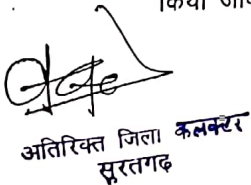 किया जा
अतिरिक्त जिला कलक्टर
सूरतगढ़